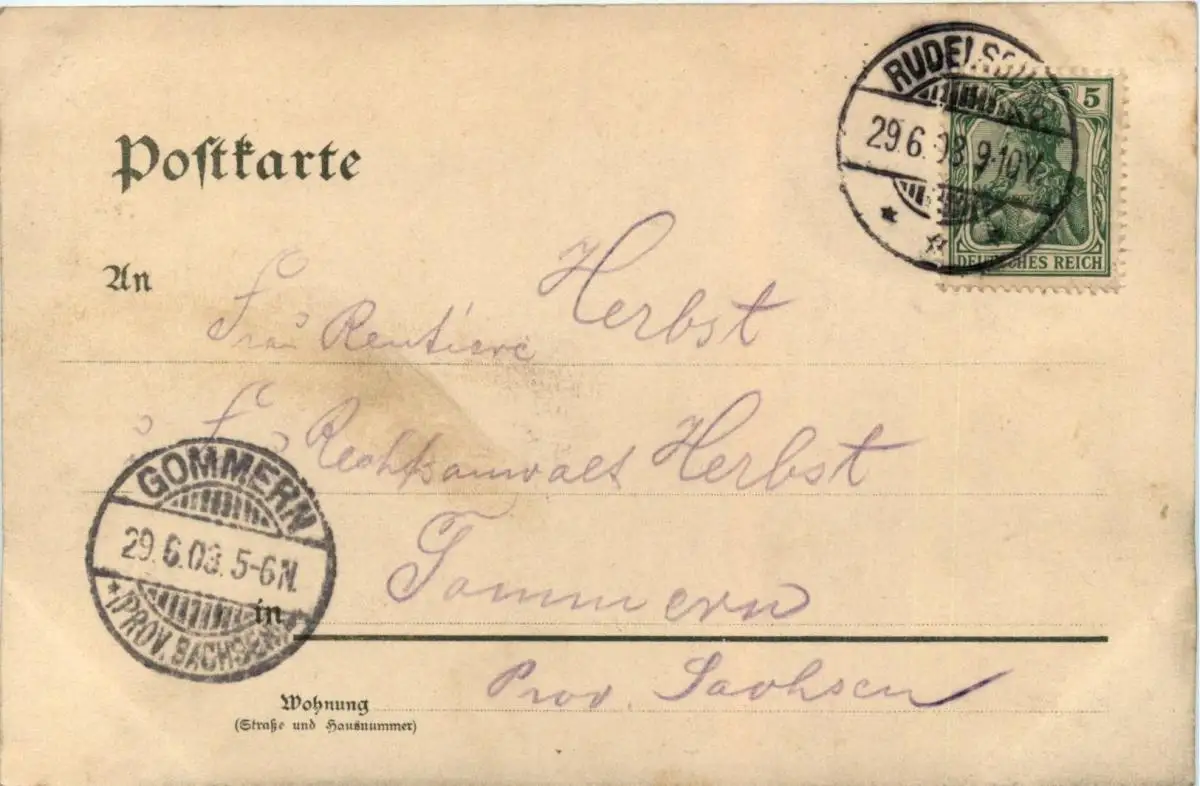 Postkarte
RUDELSBU
29.6.03.9-10V.
5
DEUTSCHES REICH
An
Frau Rentiere Herbst
Rechtsanwalt Herbst
GOMMERN
29.6.03.5-6N.
*(PROV. SACHSEN)*
Gommern
in
Prov. Sachsen
Wohnung
(Straße und Hausnummer)